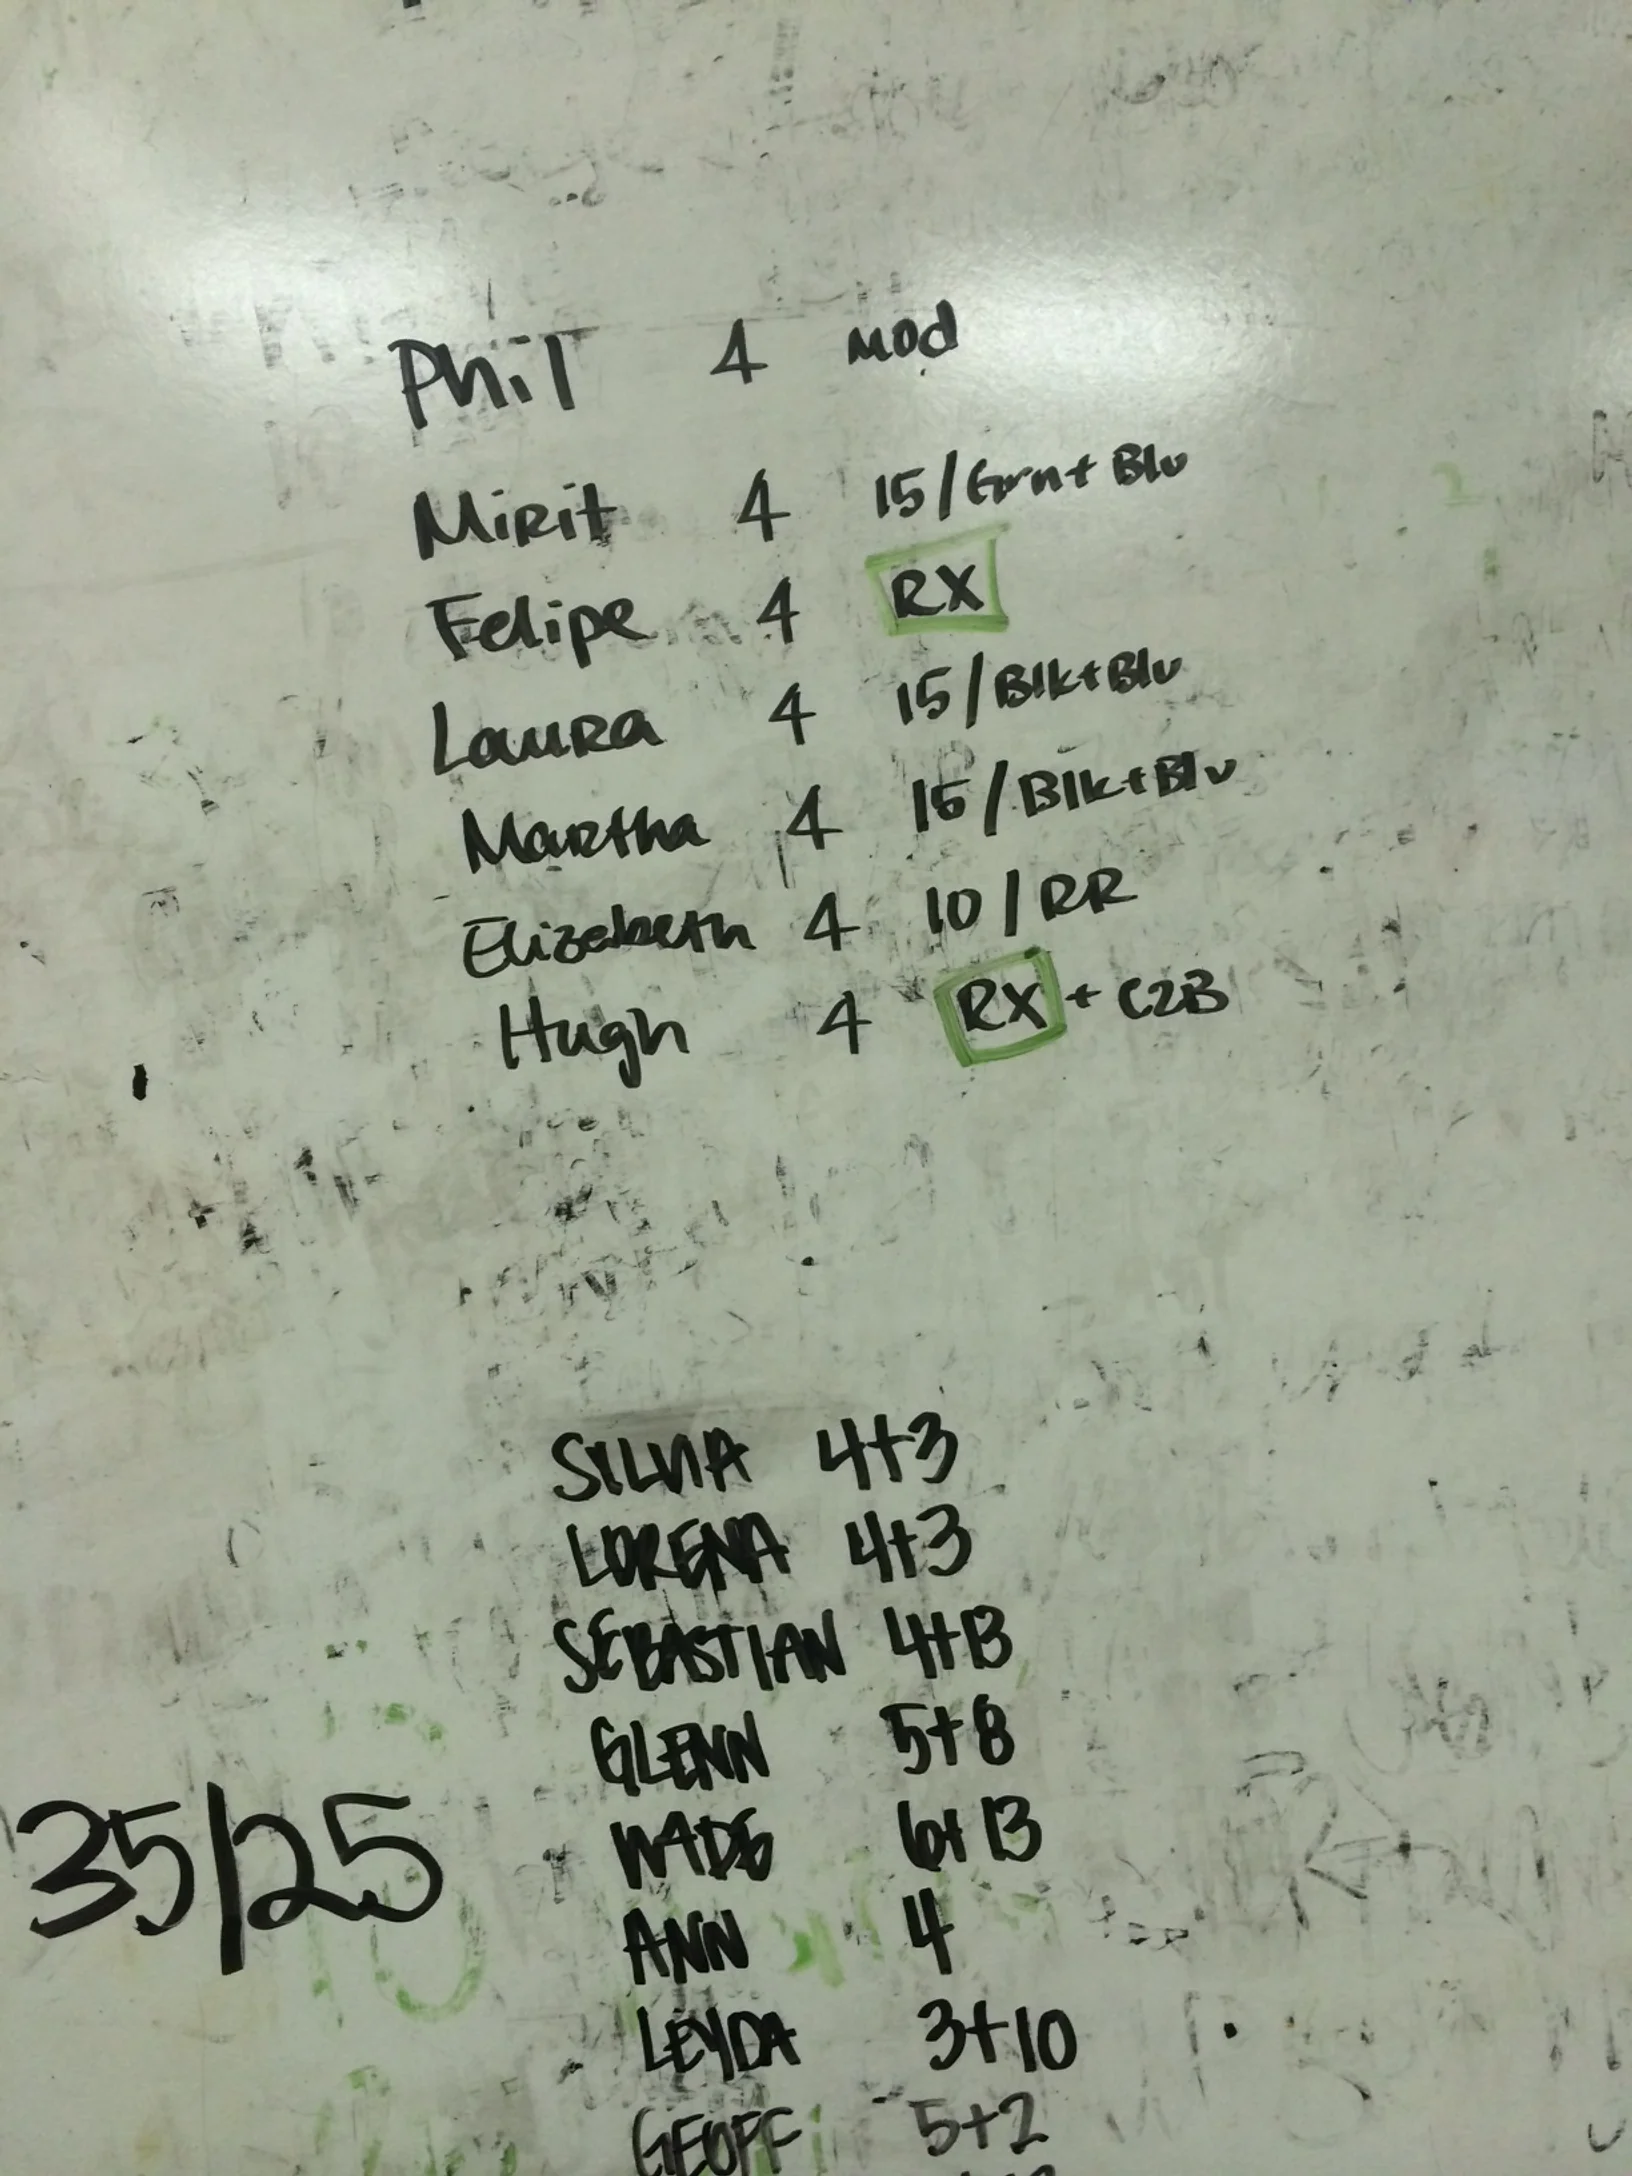 Phil 4 Mod
Mirit 4 15/Grn+Blu
Felipe 4 RX
Laura 4 15/Blk+Blu
Martha 4 15/Blk+Blu
Elizabeth 4 10/RR
Hugh 4 RX + C2B
SILVIA 4+3
LORENA 4+3
SEBASTIAN 4+13
GLENN 5+8
35/25
WADE 6+13
ANN 4
LEYDA 3+10
GEOFF 5+2